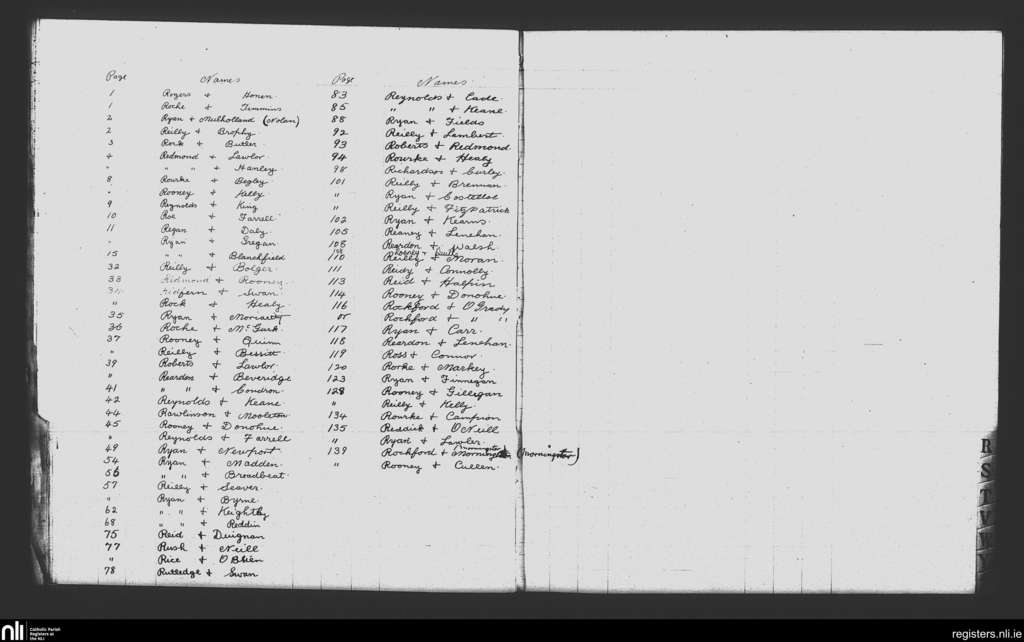 Page Names
1 Rogers + Honen
1 Roche + Timmins
2 Ryan + Mulholland (Nolan)
2 Reilly + Brophy
3 Rork + Butler
4 Redmond + Lawlor
" " " + Hanley
8 Rourke + Begley
" Rooney + Kelly
9 Reynolds + King
10 Roe + Farrell
11 Regan + Daly
" Ryan + Gregan
15 " " + Blanchfield
32 Reilly + Bolger
33 Redmond + Rooney
+ Swan
" Rock + Healy
35 Ryan + Moriarty
36 Roche + McGurk
37 Rooney + Quinn
" Reilly +
39 Roberts + Lawlor
" Reardon + Beveridge
41 " " + Condron
42 Reynolds + Keane
44 Rawlinson +
45 Rooney + Donohue
" Reynolds + Farrell
49 Ryan + Newport
54 Ryan + Madden
56 " " + Broadbent
57 Reilly + Seaver
" Ryan + Byrne
62 " " + Keightly
68 " " + Reddin
75 Reid + Duignan
77 Rush + Neill
" Rice + O'Brien
78 Rutledge + Swan
Page Names
83 Reynolds + Eade
85 " " + Keane
88 Ryan + Fields
92 Reilly + Lambert
93 Roberts + Redmond
94 Rourke + Healy
98 Richardson + Curley
101 Reilly + Brennan
" Ryan + Costelloe
" Reilly + Fitzpatrick
102 Ryan + Kearns
105 Reaney + Lenehan
108 Reardon + Walsh
Rooney + Reilly
110 Reilly + Moran
111 Reidy + Connolly
113 Reid + Halpin
114 Rooney + Donohue
116 Rockford + O'Grady
or Rochford + " "
117 Ryan + Carr
118 Reardon + Lenehan
119 Ross + Connor
120 Rorke + Markey
123 Ryan + Finnegan
128 Rooney + Gilligan
" Reilly + Kelly
134 Rourke + Campion
135 Reddick + O'Neill
" Ryan + Lawler
139 Rochford + (Morningstar)
" Rooney + Cullen
R
S
T
V
W
Y
nli Catholic Parish
Registers at
the NLI
registers.nli.ie